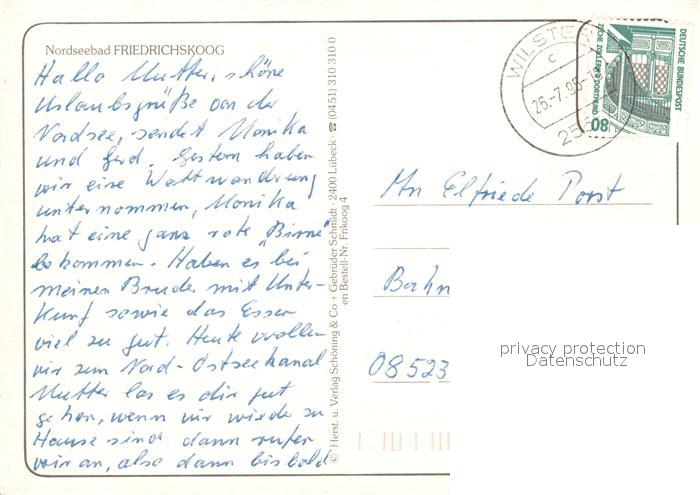 Nordseebad FRIEDRICHSKOOG
Hallo Mutter, schöne
Urlaubsgrüße von der
Nordsee, sendet Monika
und Gerd. Gestern haben
wir eine Wattwanderung
unternommen, Monika
hat eine ganz rote „Birne"
bekommen. Haben es bei
meinen Bruder mit Unter-
kunft sowie das Essen
viel zu gut. Heute wollen
wir zum Nord-Ostseekanal
Mutter las es dir gut
gehen, wenn wir wieder zu
Hause sind dann rufen
wir an, also dann bis bald
© Herst. u. Verlag Schöning & Co + Gebrüder Schmidt · 2400 Lübeck · ☎ (0451) 310 310 0
en Bestell-Nr. Frikoog 4
WILSTER
c
26.-7.95-
255
DEUTSCHE BUNDESPOST
ZECHE ZOLLERN II DORTMUND
80
An Elfriede Porst
Bahn
08523
privacy protection
Datenschutz